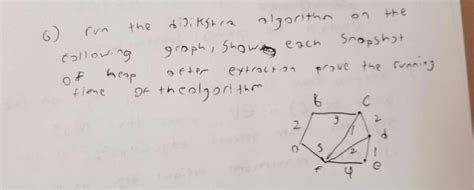 6) run the dijikstra algorithm on the
following graph, show each snapshot
of heap after extraction prove the running
time of the algorithm
B C
9 2
2 1 d
5 2 1
F 4 e